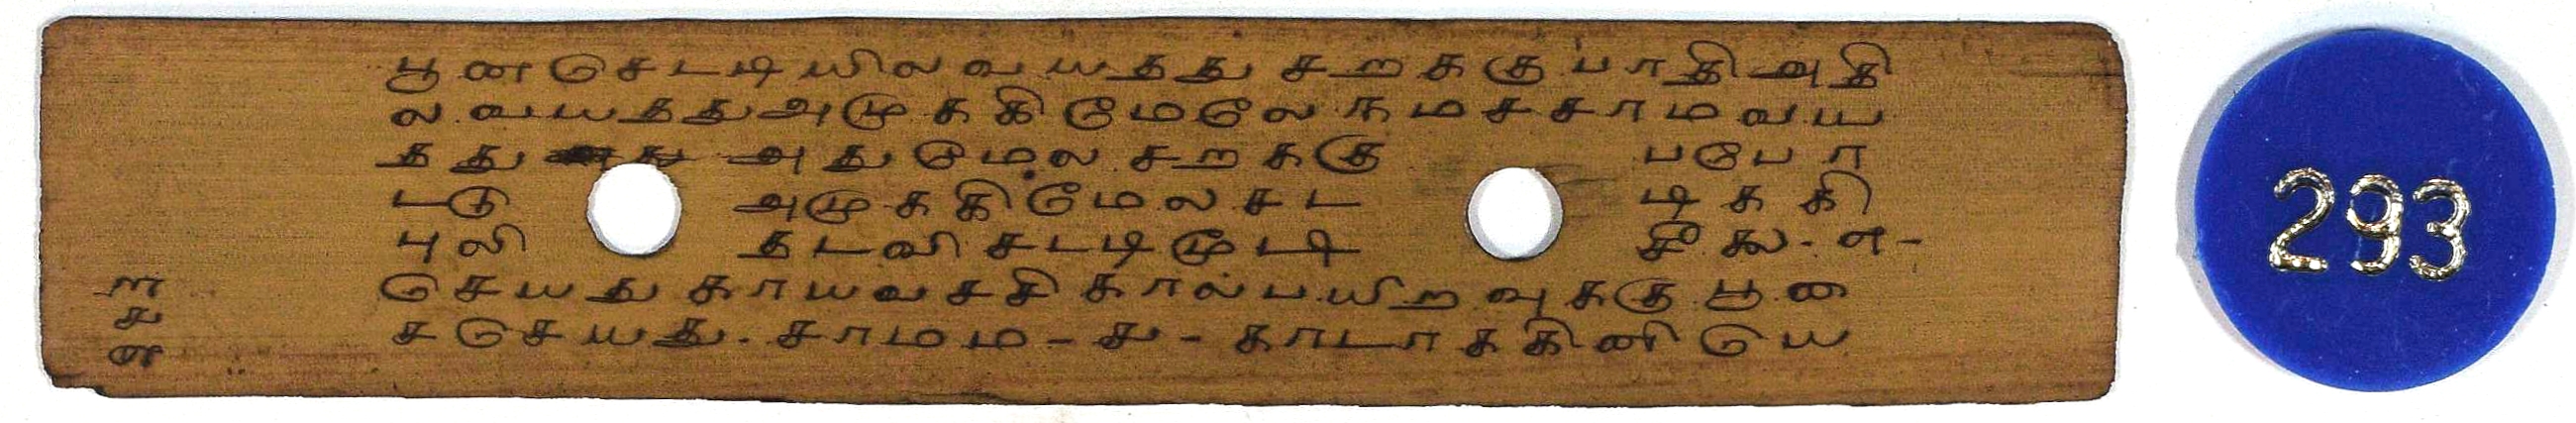 பூனசெடடியிலவயதது சறககு பாதி அதி
ல வயதது அமுககி மேலே கமசசாமவய
தது அது மேல சறககு பபோ
டடு அமுககி மேல சட டிககி
புலி தடவி சடடி மூடி சீல. எ-
செயது காயவசசி காலபயிறவுககு பூண
ச செயது. சாமம - சு - காடாககினி யெ
ள
சு
௭
293